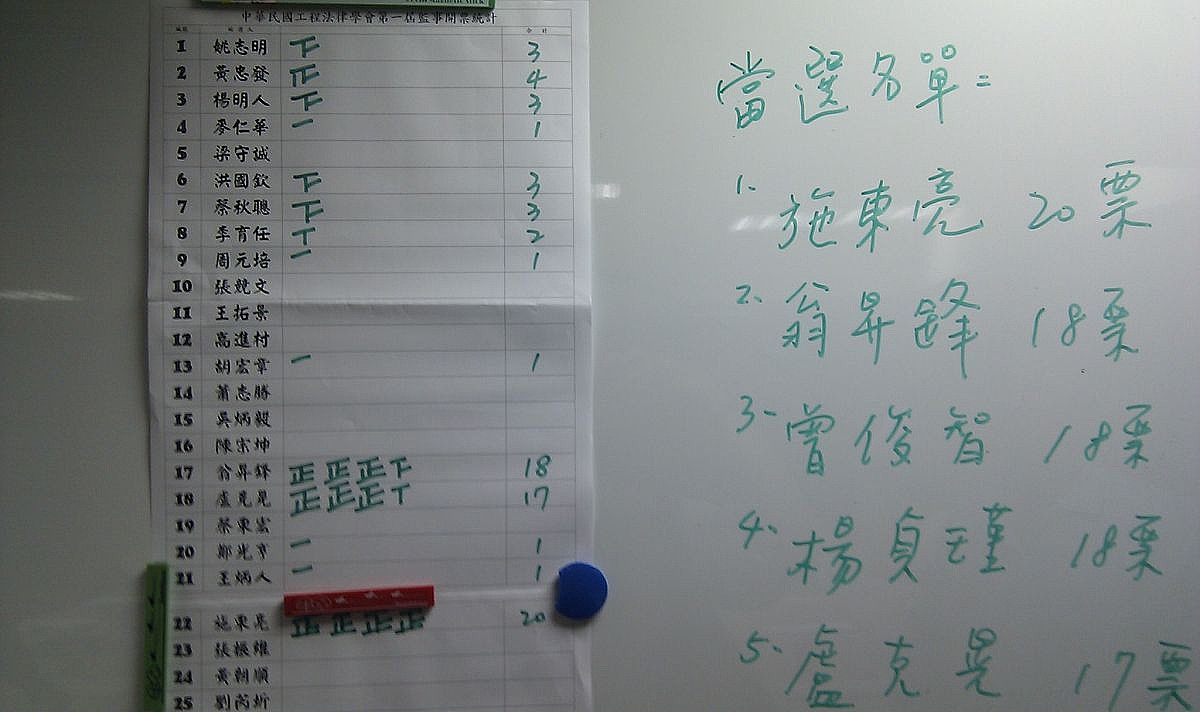 中華民國工程法律學會第一屆監事開票統計
編號 候選人 合計
1 姚志明 下 3
2 黃忠發 4
3 楊明人 下 3
4 麥仁華 一 1
5 梁守誠
6 洪國欽 下 3
7 蔡秋聰 下 3
8 李育任 丅 2
9 周元培 一 1
10 張兢文
11 王拓景
12 高進村
13 胡宏章 一 1
14 蕭志勝
15 吳炳毅
16 陳宗坤
17 翁昇鋒 正正正下 18
18 盧克昆 正正正丅 17
19 蔡東宏
20 鄭光亨 一 1
21 王炳人 一 1
22 施東亮 正正正正 20
23 張振維
24 黃朝順
25 劉芮圻
當選名單=
1. 施東亮 20票
2. 翁昇鋒 18票
3. 曾俊智 18票
4. 楊貞瑾 18票
5. 盧克昆 17票